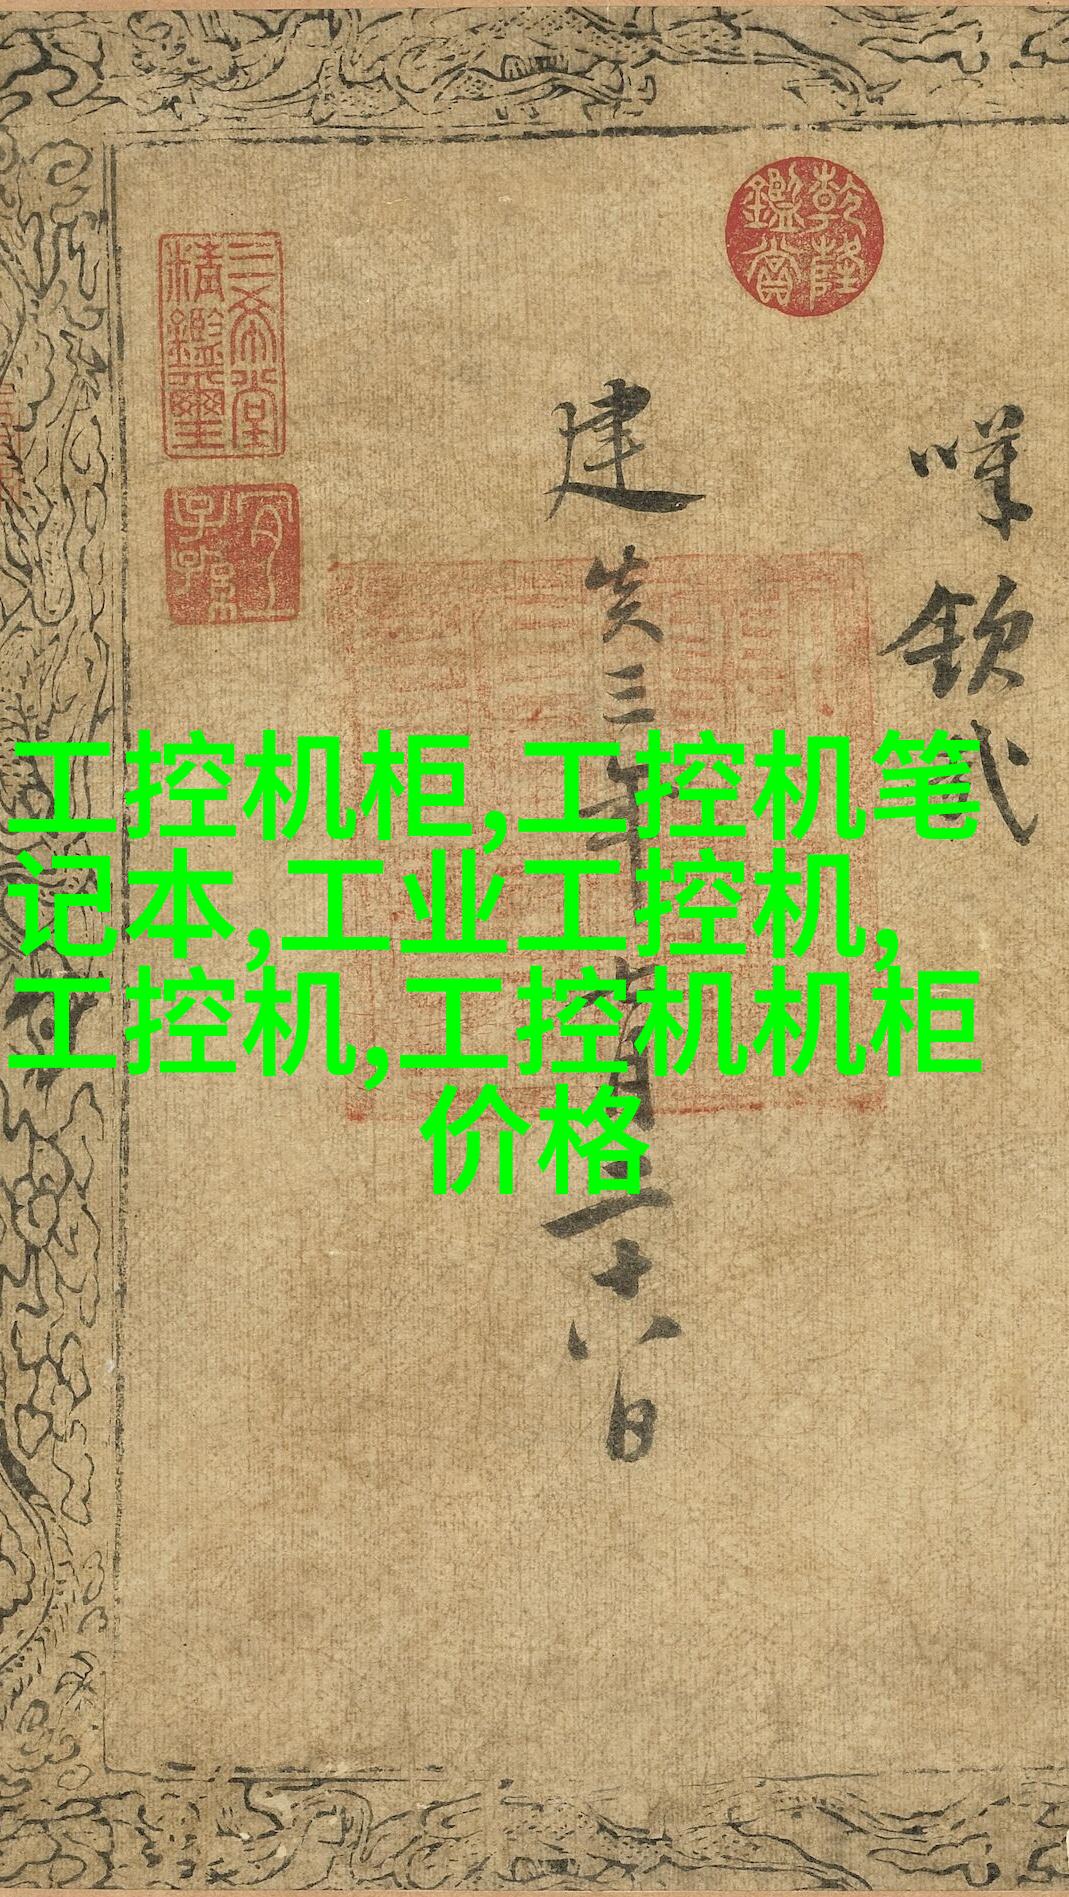 乾隆
鑑賞
三希堂
精鑑璽
宜
子孫
工控机柜,工控机笔
记本,工业工控机,
工控机,工控机机柜
价格
建炎三年
二十八日